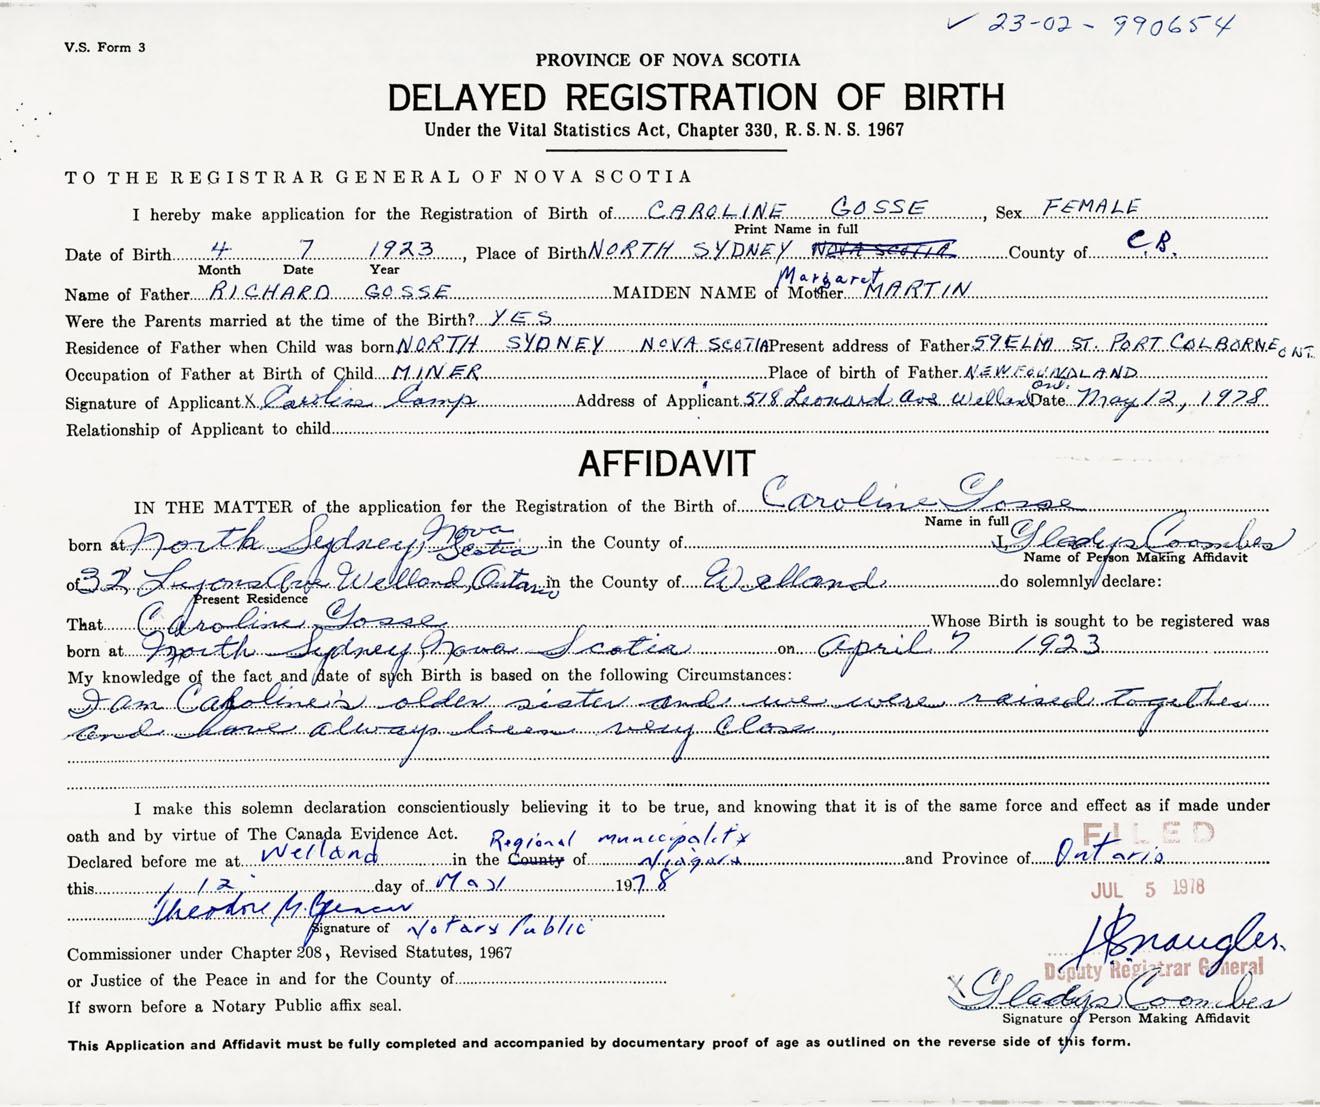 ✓ 23-02-990654
V.S. Form 3
PROVINCE OF NOVA SCOTIA
DELAYED REGISTRATION OF BIRTH
Under the Vital Statistics Act, Chapter 330, R. S. N. S. 1967
TO THE REGISTRAR GENERAL OF NOVA SCOTIA
I hereby make application for the Registration of Birth of CAROLINE GOSSE, Sex FEMALE
Print Name in full
Date of Birth 4 7 1923, Place of Birth NORTH SYDNEY NOVA SCOTIA County of C.B.
Month Date Year
Margaret
Name of Father RICHARD GOSSE MAIDEN NAME of Mother MARTIN
Were the Parents married at the time of the Birth? YES
Residence of Father when Child was born NORTH SYDNEY NOVA SCOTIA Present address of Father 59 ELM ST. PORT COLBORNE ONT.
Occupation of Father at Birth of Child MINER Place of birth of Father NEWFOUNDLAND
Signature of Applicant X Caroline Camp Address of Applicant 518 Leonard Ave Welland Ont. Date May 12, 1978
Relationship of Applicant to child
AFFIDAVIT
IN THE MATTER of the application for the Registration of the Birth of Caroline Gosse
Name in full
born at North Sydney, Nova Scotia in the County of I, Gladys Coombes
Name of Person Making Affidavit
of 32 Lyons Ave Welland, Ontario in the County of Welland do solemnly declare:
Present Residence
That Caroline Gosse Whose Birth is sought to be registered was
born at North Sydney, Nova Scotia on April 7 1923
My knowledge of the fact and date of such Birth is based on the following Circumstances:
I am Caroline's older sister and we were raised together
and have always been very close.
I make this solemn declaration conscientiously believing it to be true, and knowing that it is of the same force and effect as if made under
oath and by virtue of The Canada Evidence Act.
FILED
Regional Municipality
Declared before me at Welland in the County of Niagara and Province of Ontario
this 12 day of May 1978
JUL 5 1978
Theodore M.
Signature of Notary Public
Commissioner under Chapter 208, Revised Statutes, 1967
or Justice of the Peace in and for the County of
Deputy Registrar General
If sworn before a Notary Public affix seal.
X Gladys Coombes
Signature of Person Making Affidavit
This Application and Affidavit must be fully completed and accompanied by documentary proof of age as outlined on the reverse side of this form.